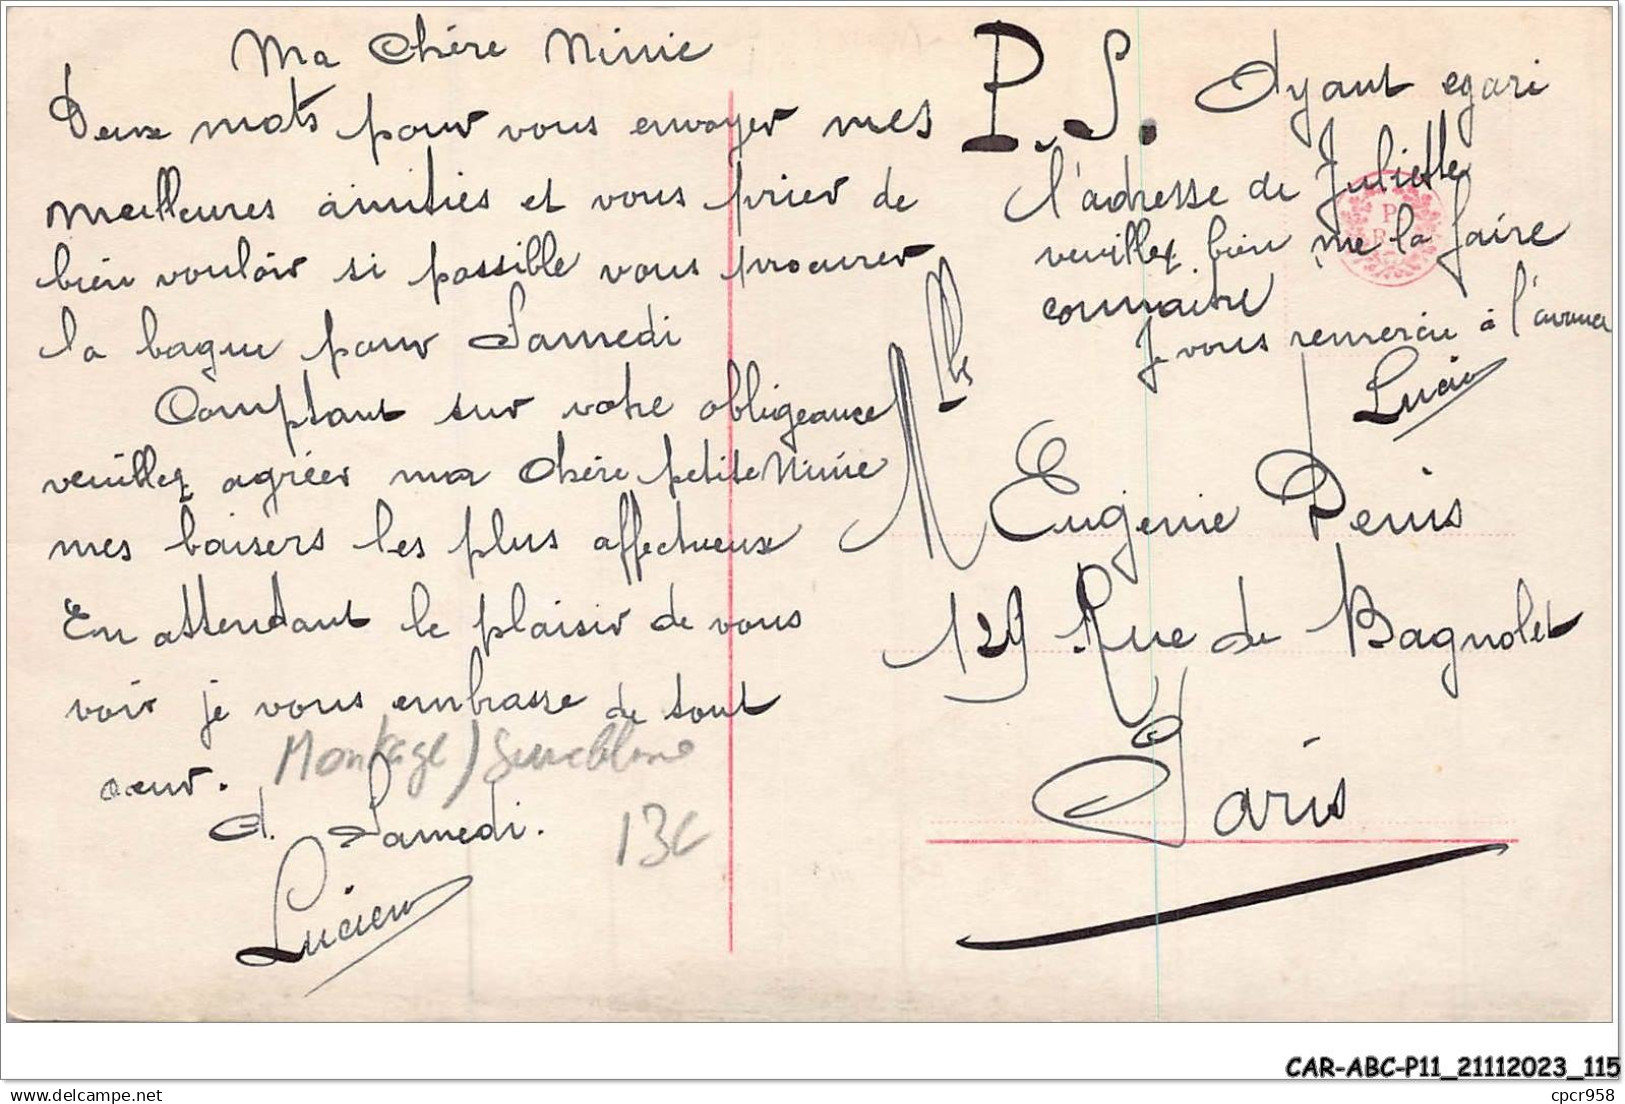 Ma Chère Ninie
Deux mots pour vous envoyer mes
meilleures amitiés et vous prier de
bien vouloir si possible vous procurer
la bague pour Samedi
Comptant sur votre obligeance
veuillez agréer ma Chère petite Ninie
mes baisers les plus affectueux
En attendant le plaisir de vous
voir je vous embrasse de tout
cœur.
à Samedi.
Lucien
Montage)
13C
P.S. Ayant egari
l'adresse de Juliette
veuillez bien me la faire
connaitre
Je vous remercie à l'avance
Lucien
Mlle
Eugenie Denis
129 Rue de Bagnolet
Paris
P
CAR-ABC-P11_21112023_115
cpcr958